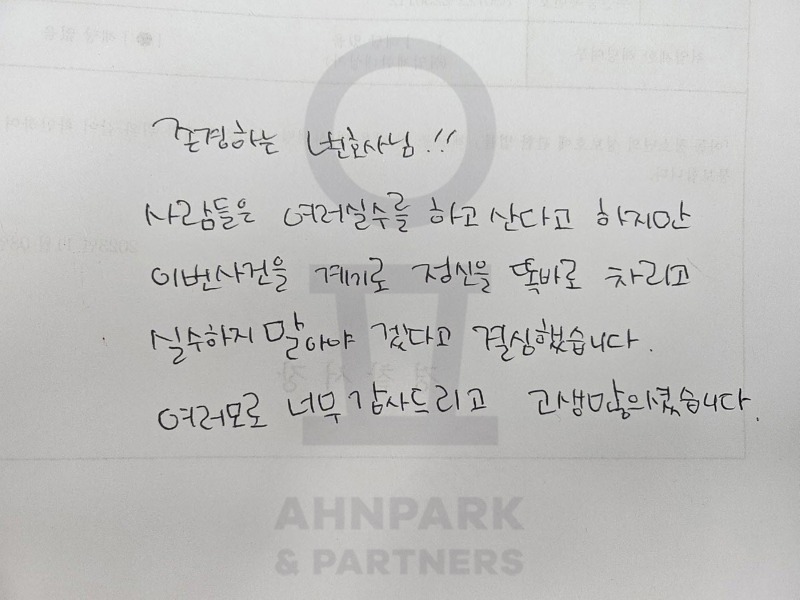 존경하는 변호사님.!!
사람들은 여러실수를 하고 산다고 하지만
이번사건을 계기로 정신을 똑바로 차리고
실수하지 말아야 겠다고 결심했습니다.
여러모로 너무 감사드리고 고생많의셨습니다.
AHNPARK
& PARTNERS